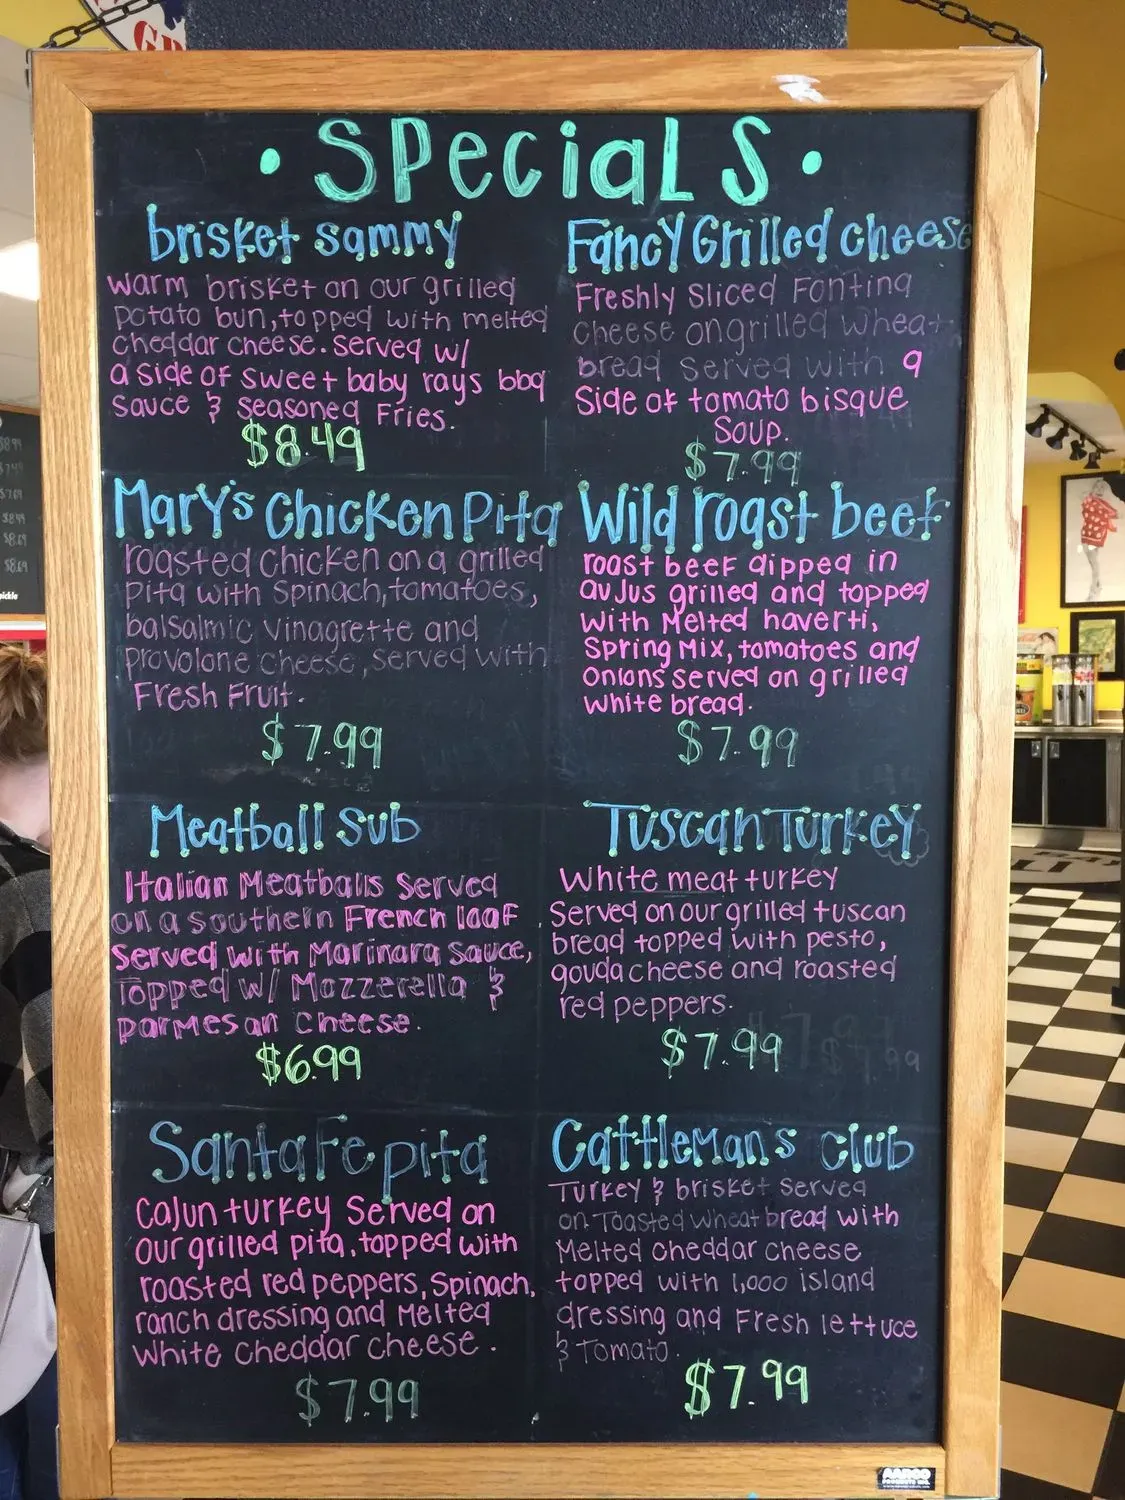 • Specials •
brisket sammy
warm brisket on our grilled
potato bun, topped with melted
cheddar cheese. served w/
a side of sweet baby rays bbq
sauce & seasoned fries.
$8.49
Fancy Grilled cheese
Freshly Sliced Fontina
cheese on grilled wheat
bread served with a
Side of tomato bisque
Soup.
$7.99
Mary's Chicken Pita
roasted Chicken on a grilled
pita with Spinach, tomatoes,
balsalmic vinagrette and
provolone cheese, served with
Fresh Fruit.
$7.99
Wild roast beef
roast beef dipped in
au Jus grilled and topped
with Melted haverti,
Spring Mix, tomatoes and
Onions served on grilled
white bread.
$7.99
Meatball Sub
Italian Meatballs Served
on a southern French loaf
Served with Marinara Sauce,
Topped w/ Mozzerella &
parmesan cheese.
$6.99
Tuscan Turkey
White meat turkey
Served on our grilled tuscan
bread topped with pesto,
gouda cheese and roasted
red peppers.
$7.99
Santa Fe pita
Cajun turkey Served on
Our grilled pita, topped with
roasted red peppers, Spinach,
ranch dressing and Melted
White cheddar cheese.
$7.99
Cattlemans club
Turkey & brisket Served
on Toasted wheat bread with
Melted cheddar cheese
topped with 1,000 island
dressing and Fresh lettuce
& Tomato.
$7.99
AARCO